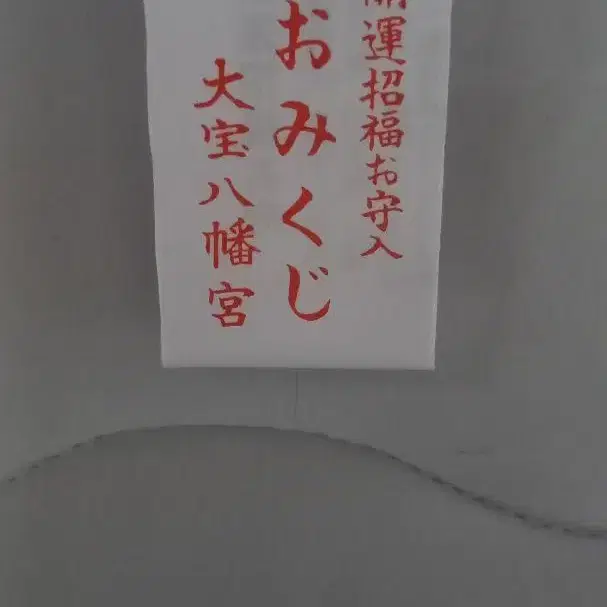 開運招福お守入
おみくじ
大宝八幡宮